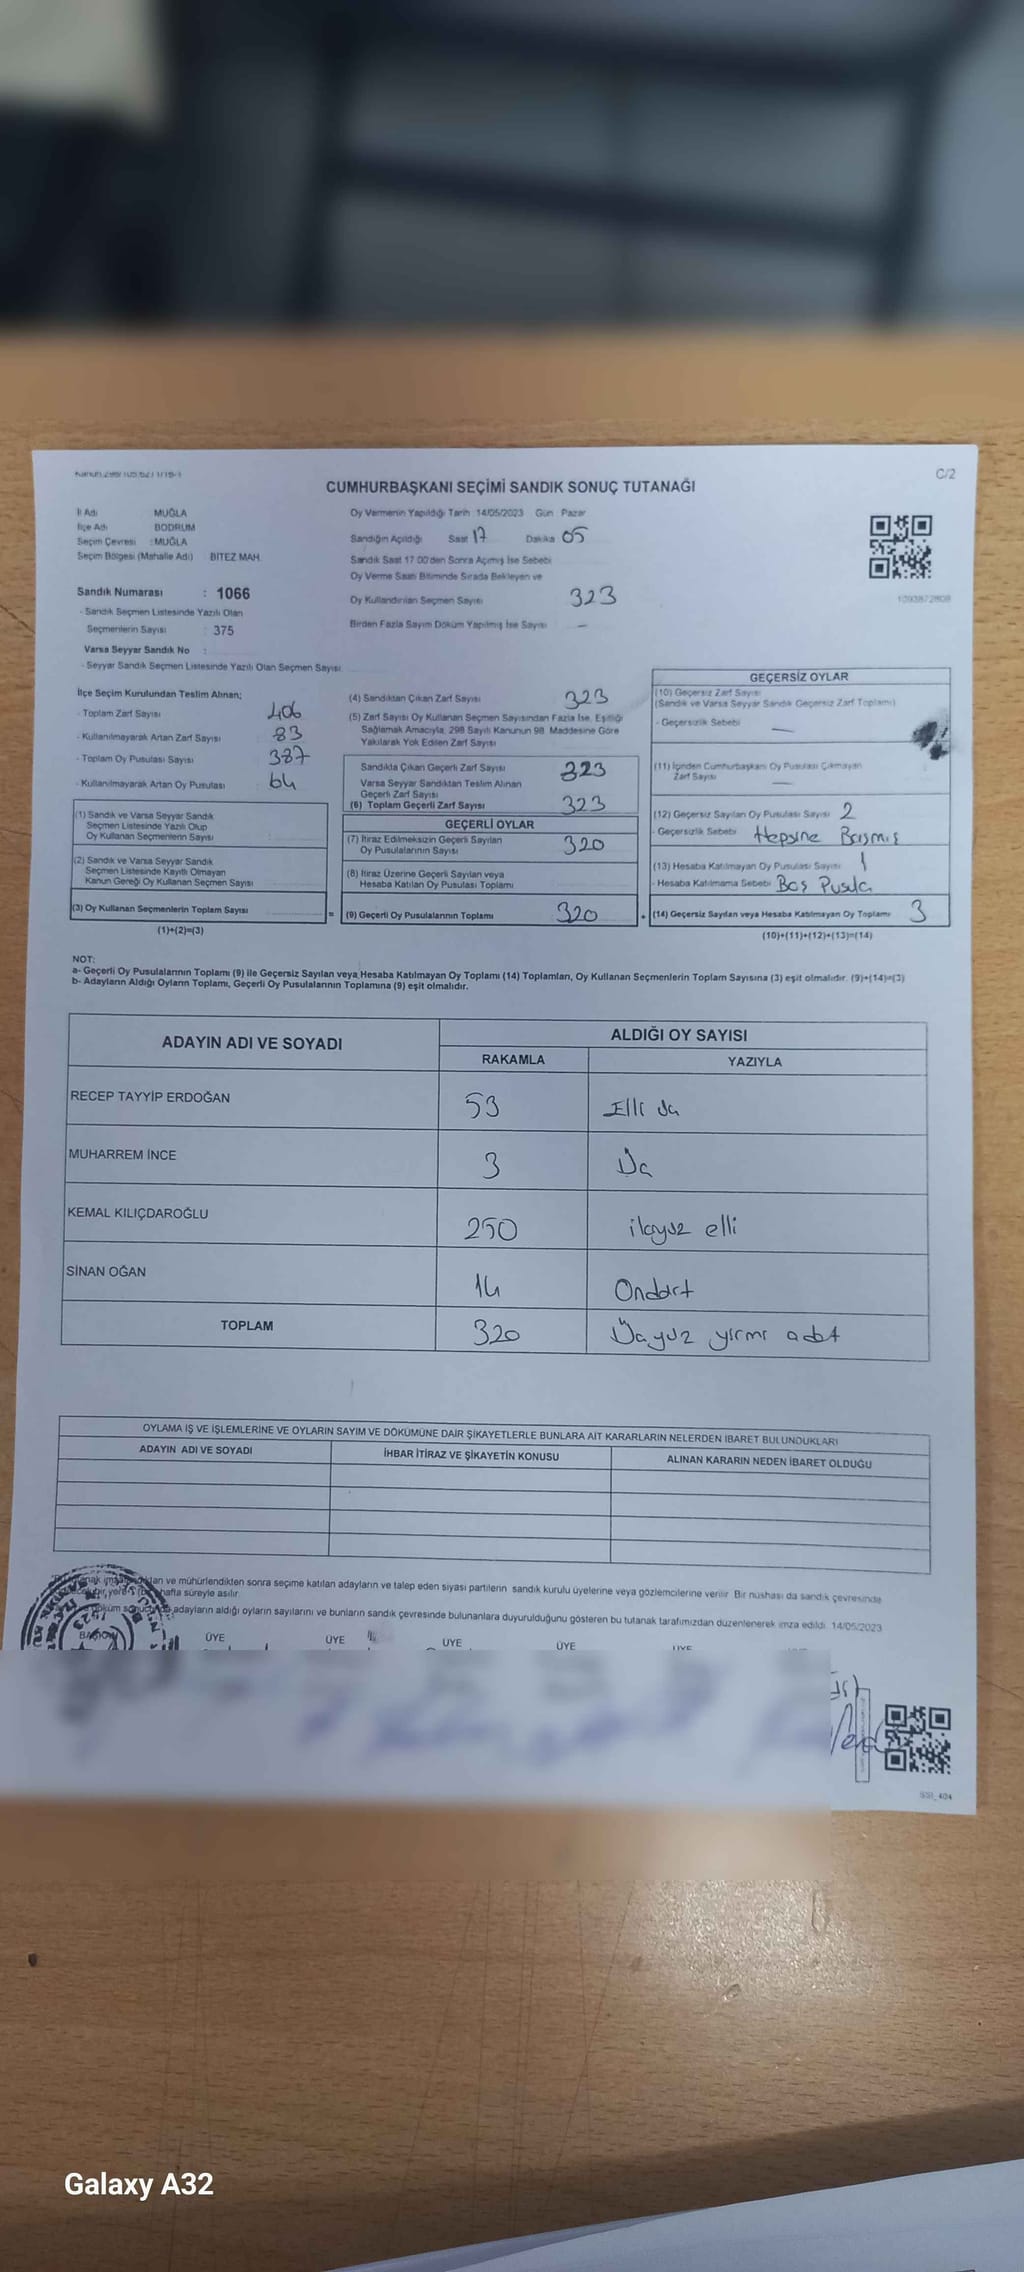 C/2
CUMHURBAŞKANI SEÇİMİ SANDIK SONUÇ TUTANAĞI
İl Adı MUĞLA
İlçe Adı BODRUM
Seçim Çevresi : MUĞLA
Seçim Bölgesi (Mahalle Adı) BİTEZ MAH.
Sandık Numarası : 1066
- Sandık Seçmen Listesinde Yazılı Olan
Seçmenlerin Sayısı : 375
Varsa Seyyar Sandık No :
- Seyyar Sandık Seçmen Listesinde Yazılı Olan Seçmen Sayısı
Oy Vermenin Yapıldığı Tarih 14/05/2023 Gün Pazar
Sandığın Açıldığı Saat 17 Dakika 05
Sandık Saat 17.00'den Sonra Açılmış İse Sebebi
Oy Verme Saati Bitiminde Sırada Bekleyen ve
Oy Kullandırılan Seçmen Sayısı 323
Birden Fazla Sayım Döküm Yapılmış İse Sayısı —
1093872808
İlçe Seçim Kurulundan Teslim Alınan;
- Toplam Zarf Sayısı 406
- Kullanılmayarak Artan Zarf Sayısı 83
- Toplam Oy Pusulası Sayısı 387
- Kullanılmayarak Artan Oy Pusulası 64
(1) Sandık ve Varsa Seyyar Sandık
Seçmen Listesinde Yazılı Olup
Oy Kullanan Seçmenlerin Sayısı
(2) Sandık ve Varsa Seyyar Sandık
Seçmen Listesinde Kayıtlı Olmayan
Kanun Gereği Oy Kullanan Seçmen Sayısı
(3) Oy Kullanan Seçmenlerin Toplam Sayısı =
(1)+(2)=(3)
(4) Sandıktan Çıkan Zarf Sayısı 323
(5) Zarf Sayısı Oy Kullanan Seçmen Sayısından Fazla İse, Eşitliği
Sağlamak Amacıyla, 298 Sayılı Kanunun 98. Maddesine Göre
Yakılarak Yok Edilen Zarf Sayısı
Sandıkta Çıkan Geçerli Zarf Sayısı 323
Varsa Seyyar Sandıktan Teslim Alınan
Geçerli Zarf Sayısı
(6) Toplam Geçerli Zarf Sayısı 323
GEÇERLİ OYLAR
(7) İtiraz Edilmeksizin Geçerli Sayılan
Oy Pusulalarının Sayısı 320
(8) İtiraz Üzerine Geçerli Sayılan veya
Hesaba Katılan Oy Pusulası Toplamı
(9) Geçerli Oy Pusulalarının Toplamı 320 +
GEÇERSİZ OYLAR
(10) Geçersiz Zarf Sayısı
(Sandık ve Varsa Seyyar Sandık Geçersiz Zarf Toplamı)
- Geçersizlik Sebebi —
(11) İçinden Cumhurbaşkanı Oy Pusulası Çıkmayan
Zarf Sayısı —
(12) Geçersiz Sayılan Oy Pusulası Sayısı 2
- Geçersizlik Sebebi Hepsine Basmış
(13) Hesaba Katılmayan Oy Pusulası Sayısı 1
- Hesaba Katılmama Sebebi Boş Pusula
(14) Geçersiz Sayılan veya Hesaba Katılmayan Oy Toplamı 3
(10)+(11)+(12)+(13)=(14)
NOT:
a- Geçerli Oy Pusulalarının Toplamı (9) ile Geçersiz Sayılan veya Hesaba Katılmayan Oy Toplamı (14) Toplamları, Oy Kullanan Seçmenlerin Toplam Sayısına (3) eşit olmalıdır. (9)+(14)=(3)
b- Adayların Aldığı Oyların Toplamı, Geçerli Oy Pusulalarının Toplamına (9) eşit olmalıdır.
ADAYIN ADI VE SOYADI ALDIĞI OY SAYISI
RAKAMLA YAZIYLA
RECEP TAYYİP ERDOĞAN 53 Elli üç
MUHARREM İNCE 3 Üç
KEMAL KILIÇDAROĞLU 250 ikiyüz elli
SİNAN OĞAN 14 Ondört
TOPLAM 320 Üçyüz yirmi adet
OYLAMA İŞ VE İŞLEMLERİNE VE OYLARIN SAYIM VE DÖKÜMÜNE DAİR ŞİKAYETLERLE BUNLARA AİT KARARLARIN NELERDEN İBARET BULUNDUKLARI
ADAYIN ADI VE SOYADI İHBAR İTİRAZ VE ŞİKAYETİN KONUSU ALINAN KARARIN NEDEN İBARET OLDUĞU
ve mühürlendikten sonra seçime katılan adayların ve talep eden siyasi partilerin sandık kurulu üyelerine veya gözlemcilerine verilir. Bir nüshası da sandık çevresinde
hafta süreyle asılır.
adayların aldığı oyların sayılarını ve bunların sandık çevresinde bulunanlara duyurulduğunu gösteren bu tutanak tarafımızdan düzenlenerek imza edildi. 14/05/2023
BAŞKAN ÜYE ÜYE ÜYE ÜYE ÜYE
SSI_404
Galaxy A32